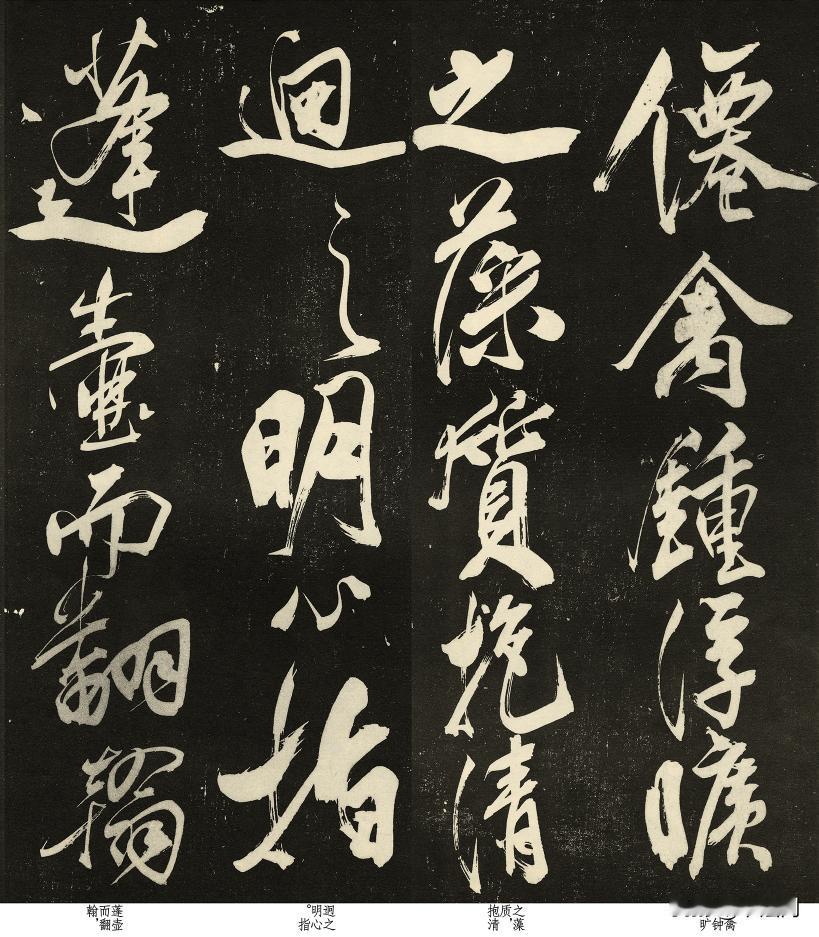 僊禽鍾浮曠
之藻質抱清
迥之明心指
蓬壺而翻翰
禽
钟
旷
之藻
质，
抱清
迥之
明心
。指
蓬壶
而翻
翰，